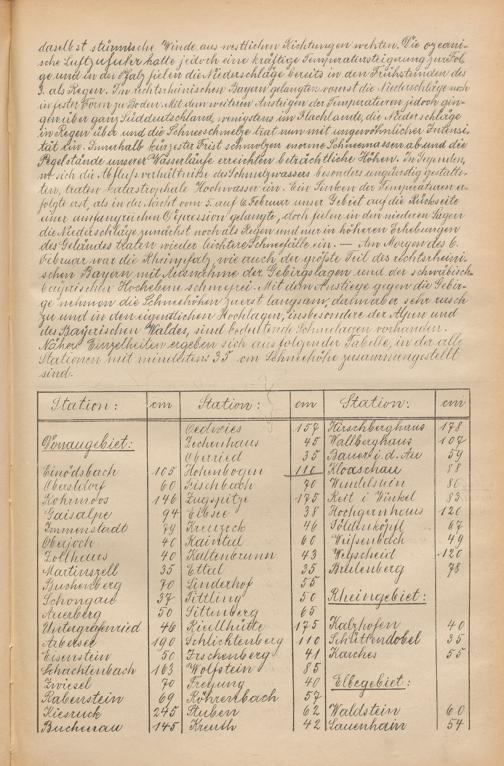 daselbst stürmische Winde aus westlichen Richtungen wehten. Die ozeani-
sche Luftzufuhr hatte jedoch eine kräftige Temperatursteigerung zur Fol-
ge und in der Pfalz fielen die Niederschläge bereits in den Frühstunden des
3. als Regen. Im rechtsrheinischen Bayern gelangten vorerst die Niederschläge noch
in fester Form zu Boden. Mit dem weiteren Ansteigen der Temperaturen jedoch gin-
gen über ganz Süddeutschland, wenigstens im Flachlande, die Niederschläge
in Regen über und die Schneeschmelze trat nun mit ungewöhnlicher Intensi-
tät ein. Innerhalb kürzester Frist schmolzen enorme Schneemassen ab und die
Pegelstände unserer Wasserläufe erreichten beträchtliche Höhen. In Gegenden,
wo sich die Abflussverhältnisse des Schmelzwassers besonders ungünstig gestalte-
ten, traten katastrophale Hochwasser ein. Ein Sinken der Temperaturen er-
folgte erst, als in der Nacht vom 5. auf 6. Februar unser Gebiet auf die Rückseite
einer umfangreichen Depression gelangte, doch fielen in den niederen Lagen
die Niederschläge zunächst noch als Regen und nur in höheren Erhebungen
des Geländes traten wieder leichtere Schneefälle ein. — Am Morgen des 6.
Februar war die Rheinpfalz, wie auch der größte Teil des rechtsrheini-
schen Bayern mit Ausnahme der Gebirgslagen und der schwäbisch
bayerischen Hochebene schneefrei. Mit dem Anstiege gegen die Gebir-
ge nehmen die Schneehöhen zuerst langsam, dann aber sehr rasch
zu und in den eigentlichen Hochlagen, insbesondere der Alpen und
des Bayerischen Waldes, sind bedeutende Schneelagen vorhanden.
Nähere Einzelheiten ergeben sich aus folgender Tabelle, in der alle
Stationen mit mindestens 35 cm Schneehöhe zusammengestellt
sind.
Station: cm
Donaugebiet:
Einödsbach 105
Oberstdorf 60
Rohrmoos 146
Gaisalpe 94
Immenstadt 79
Oberjoch 40
Zollhaus 40
Martinszell 35
Buchenberg 70
Schongau 37
Auerberg 50
Untergrafenried 46
Arbersee 190
Eisenstein 50
Schachtenbach 163
Zwiesel 70
Rabenstein 69
Riesruck 245
Buchenau 145
Station: cm
Oedwies 157
Zechenhaus 45
Oberried 35
Hohenbogen 110
Fischbach 70
Zugspitze 175
Eibsee 38
Kreuzeck 46
Raintal 60
Kaltenbrunn 43
Ettal 35
Linderhof 55
Tittling 50
Tittenberg 65
Riedlhütte 175
Schlichtenberg 110
Irschenberg 41
Wolfstein 85
Freyung 40
Röhrenbach 57
Stuben 62
Kreuth 42
Station: cm
Hirschberghaus 178
Wallberghaus 107
Bauer i. d. Au 59
Kloaschau 88
Wendelstein 80
Reit i Winkel 83
Hochgernhaus 120
Söldenköpfl 67
Weißenbach 49
Wegscheid 120
Breitenberg 78
Rheingebiet:
Kalzhofen 40
Schüttendobel 35
Karches 55
Elbegebiet:
Waldstein 60
Lauenhain 54